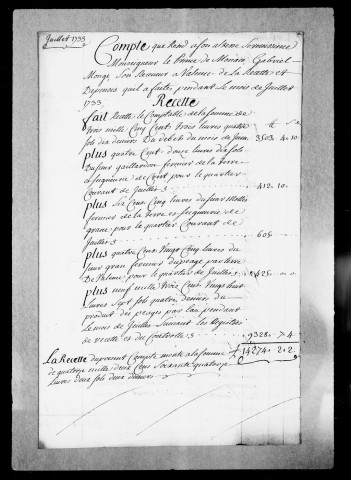 Juillet 1733
Compte que Rend a son altesse Serenissime
Monseigneur le Prince de Monaco, Gabriel
Monge, Son Receveur a Valence de la Recette et
Depences quil a faite, pendant Le mois de Juillet
1733. Recette
fait Recette le Comptable de la somme de
trois mille Cinq Cent trois livres quatre
sols dix deniers Du debet du mois de Juin 3503. 4. 10.
plus quatre Cent douze livres dix sols
Du sieur gaillardon fermier de la terre
et seigneurie de pour le quartier
Courant de Juillet 412. 10.
plus six Cens Cinq livres du sieur
fermier de la terre et seigneurie de
grane pour le quartier Courant de
Juillet 605
plus quatre Cens Vingt Cinq livres du
sieur gran fermier du peage par terre
De Valence, pour le quartier de Juillet 425.
plus neuf mille trois Cens Vingt huit
Livres Sept sols quatre deniers du
produit des peages par eau pendant
Le mois de Juillet suivant les Registres
de recette et du Controlle 9328. 7. 4.
La Recette du present Compte monte a la somme 14274. 2. 2.
de quatorze mille deux Cens Soixante quatorze
livres deux sols deux deniers